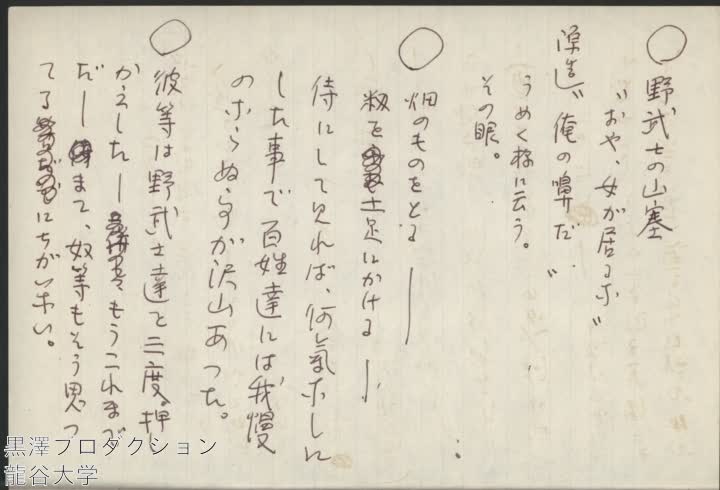 ○ 野武士の山塞
“おや、女が居るな”
“俺の嚊だ”
うめく様に云う。
その眼。
○ 畑のものをとる――
籾を土足にかける――
侍にして見れば、何気なしに
した事で百姓達には我慢
のならぬ事が沢山あった。
○ 彼等は野武士達と三度。押し
かえした―もうこれまで
だ―まて、奴等もそう思っ
てるにちがいない。
黒澤プロダクション
龍谷大学